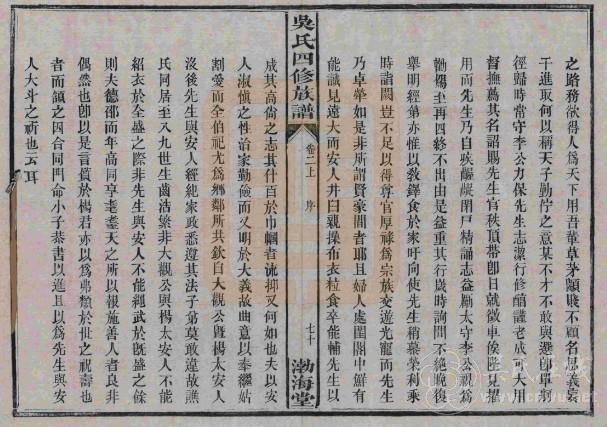 之路務欲得人為天下用吾輩草茅顯賤不顧名思義冥
干進取何以稱天子勤佇之意某不才不敢與選即單車
徑歸時常守李公力保先生志潔行修醇謹老成可大用
督撫薦其名詔賜先生官秩頂帶即日就徵車俟隆見擢
用而先生乃自疾齲齲閉戸精誦志益勵太守李公親為
勸爲至再四終不出由是益重其行歲時詢問不絕晚復
舉明經第亦惟以教鐸食於家吁向使先生稍慕榮利乘
時詣闕豈不足以得尊官厚祿為宗族交遊光寵而先生
乃卓犖如是非所謂賢豪間者耶且婦人處閨閣中鮮有
能識見遠大而安人井臼親操布衣粒食卒能輔先生以
吳氏四修族譜
卷二上 序
七十
渤海堂
成其高尚之志其什百於巾幗者流抑又何如也夫以安
人淑慎之性治家勤儉而又明於大義故曲意以奉繼姑
割愛而全伯祀尤為鄉鄰所共欽自大觀公暨楊太安人
沒後先生與安人經紀家政悉遵其法子弟莫敢違故譙
氏同居至八九世生齒浩繁非大觀公與楊太安人不能
紹衣於全盛之際非先生與安人不能繩武於既盛之餘
則夫德邵而年高同享耄耋天之所以報施善人者良非
偶然也卽以是言質於楊君亦以為弗類於世之祝壽也
者而頷之因合同門命小子恭書以進且以為先生與安
人大斗之祈也云耳